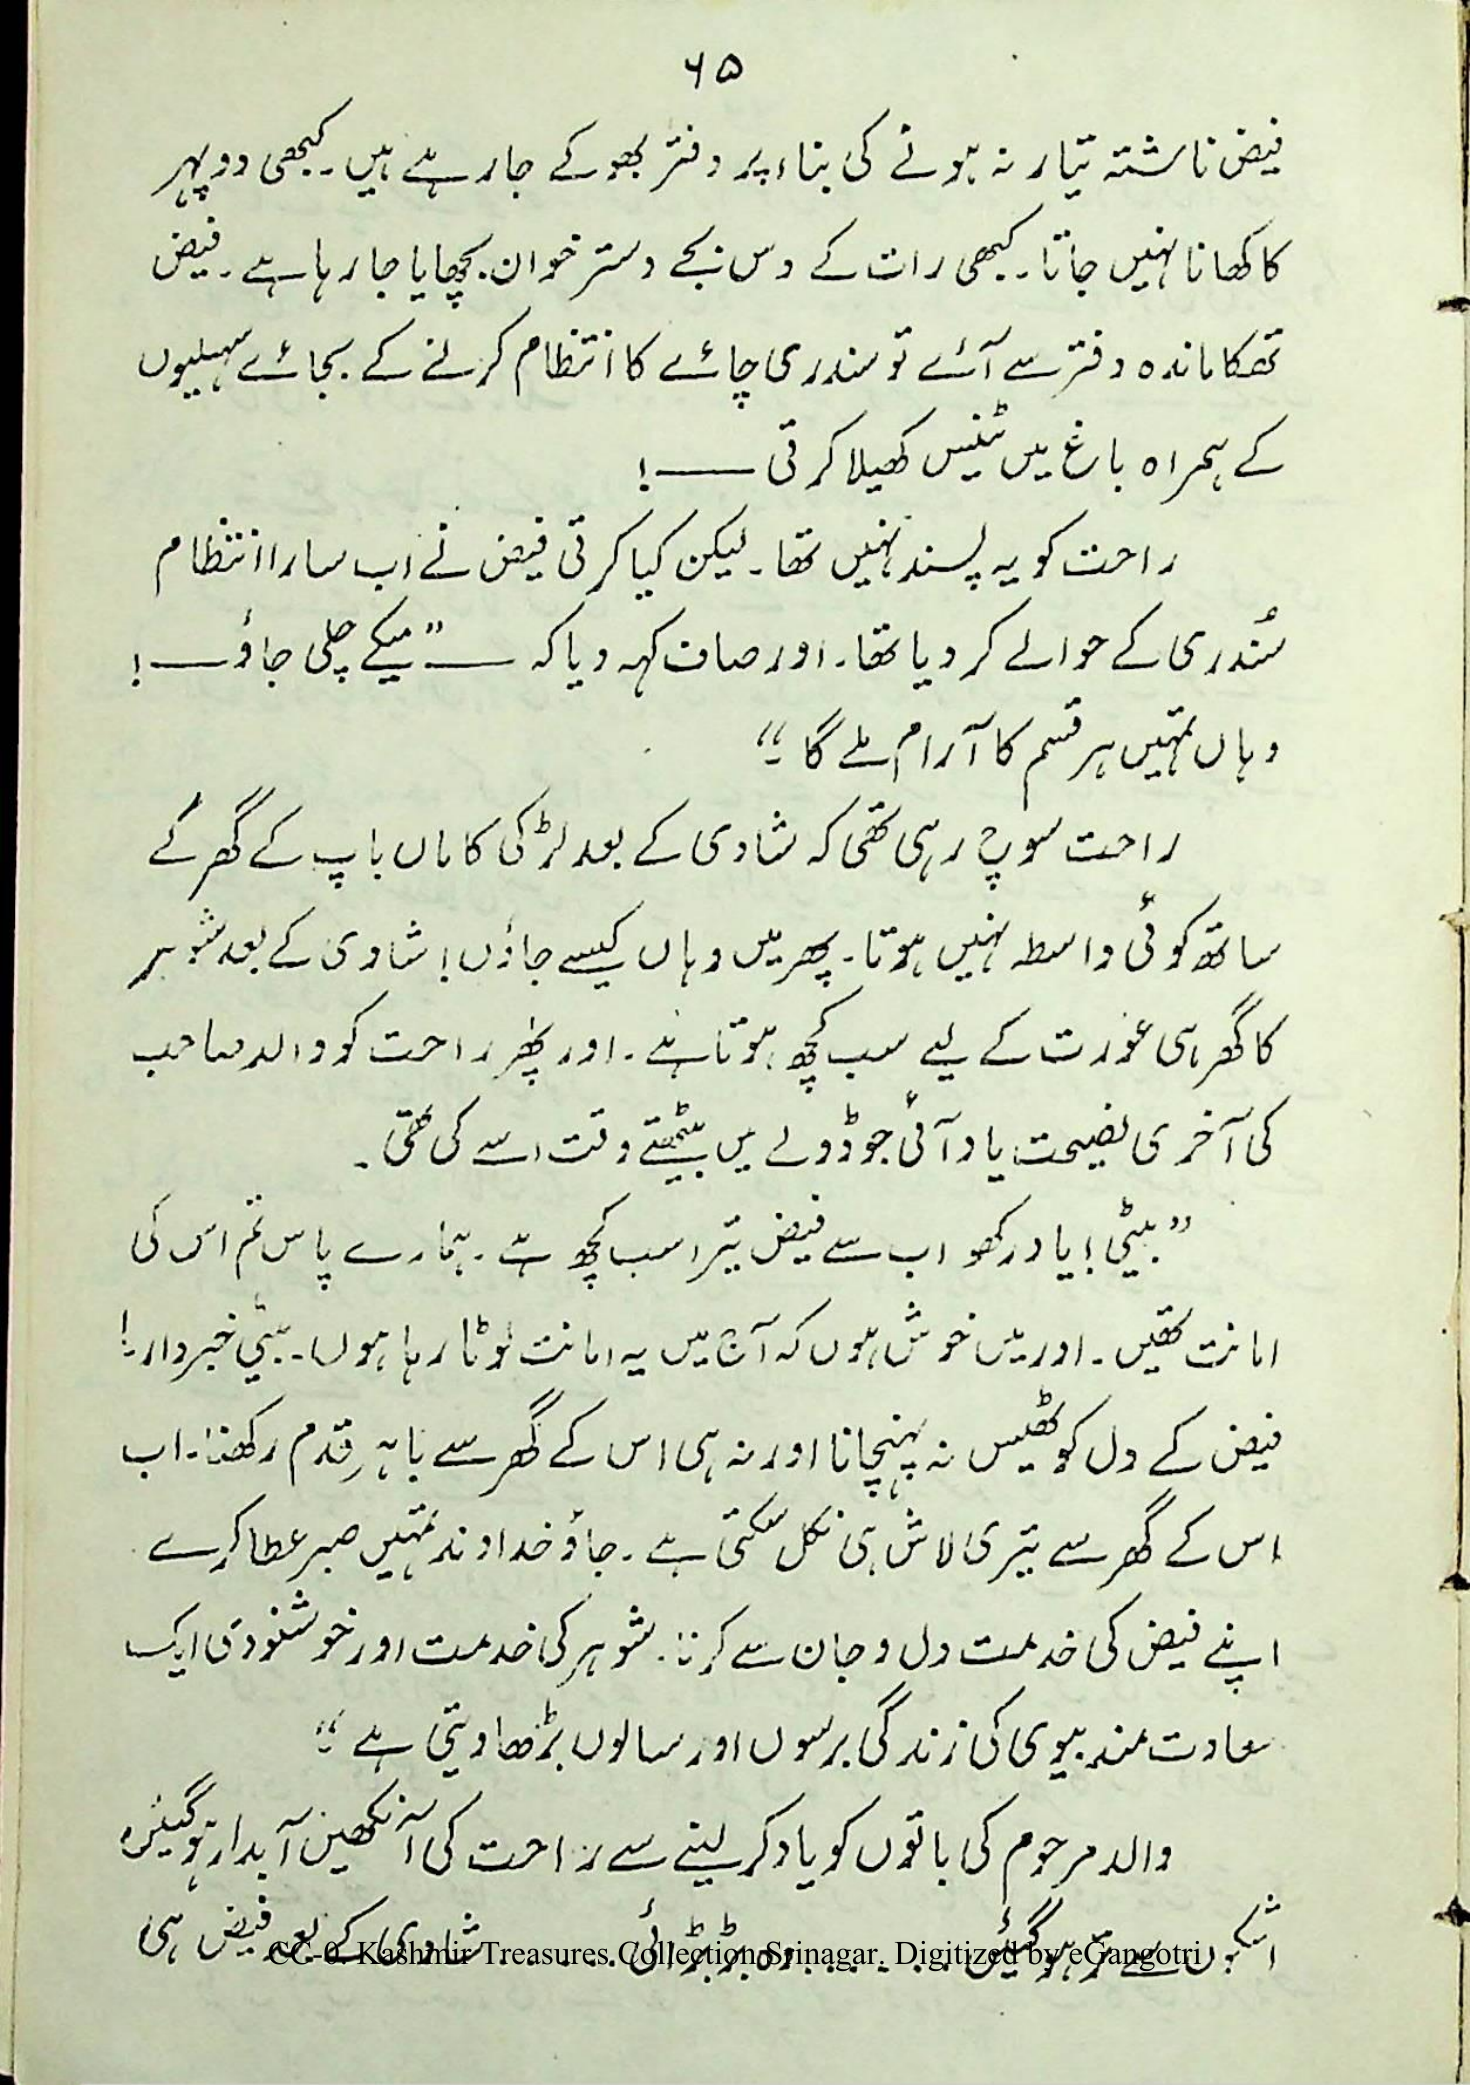 ۶۵
فیض ناشتہ تیار نہ ہونے کی بناء پر دفتر بھوکے جا رہے ہیں۔ کبھی دوپہر
کا کھانا نہیں جاتا۔ کبھی رات کے دس بجے دسترخوان بچھایا جا رہا ہے۔ فیض
تھکا ماندہ دفتر سے آئے تو سندری چائے کا انتظام کرنے کے بجائے سہیلیوں
کے ہمراہ باغ میں ٹینس کھیلا کرتی ——!
راحت کو یہ پسند نہیں تھا۔ لیکن کیا کرتی فیض نے اب سارا انتظام
سُندری کے حوالے کر دیا تھا۔ اور صاف کہہ دیا کہ —— ”میکے چلی جاؤ ——!
وہاں تمہیں ہر قسم کا آرام ملے گا۔“
راحت سوچ رہی تھی کہ شادی کے بعد لڑکی کا ماں باپ کے گھر کے
ساتھ کوئی واسطہ نہیں ہوتا۔ پھر میں وہاں کیسے جاؤں! شادی کے بعد شوہر
کا گھر ہی عورت کے لیے سب کچھ ہوتا ہے۔ اور پھر راحت کو والد صاحب
کی آخری نصیحت یاد آئی جو ڈولے میں بیٹھتے وقت اسے کی تھی۔
”بیٹی! یاد رکھو اب سے فیض تیرا سب کچھ ہے۔ ہمارے پاس تم اس کی
امانت تھیں۔ اور میں خوش ہوں کہ آج میں یہ امانت لوٹا رہا ہوں۔ بیٹی خبردار!
فیض کے دل کو ٹھیس نہ پہنچانا اور نہ ہی اس کے گھر سے باہر قدم رکھنا۔ اب
اس کے گھر سے تیری لاش ہی نکل سکتی ہے۔ جاؤ خداوند تمہیں صبر عطا کرے
اپنے فیض کی خدمت دل و جان سے کرنا۔ شوہر کی خدمت اور خوشنودی ایک
سعادت مند بیوی کی زندگی برسوں اور سالوں بڑھا دیتی ہے۔“
والد مرحوم کی باتوں کو یاد کر لینے سے راحت کی آنکھیں آبدار ہو گیئں۔
اشکوں سے تر ہو گئیں ...... وہ بڑبڑائی ...... شادی کے بعد فیض ہی
CC-0. Kashmir Treasures Collection Srinagar. Digitized by eGangotri